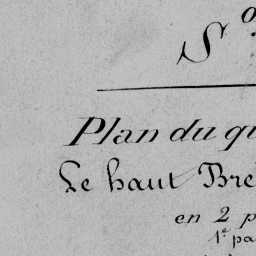 S
Plan du qu
Le haut Bre
en 2 p
1e pa